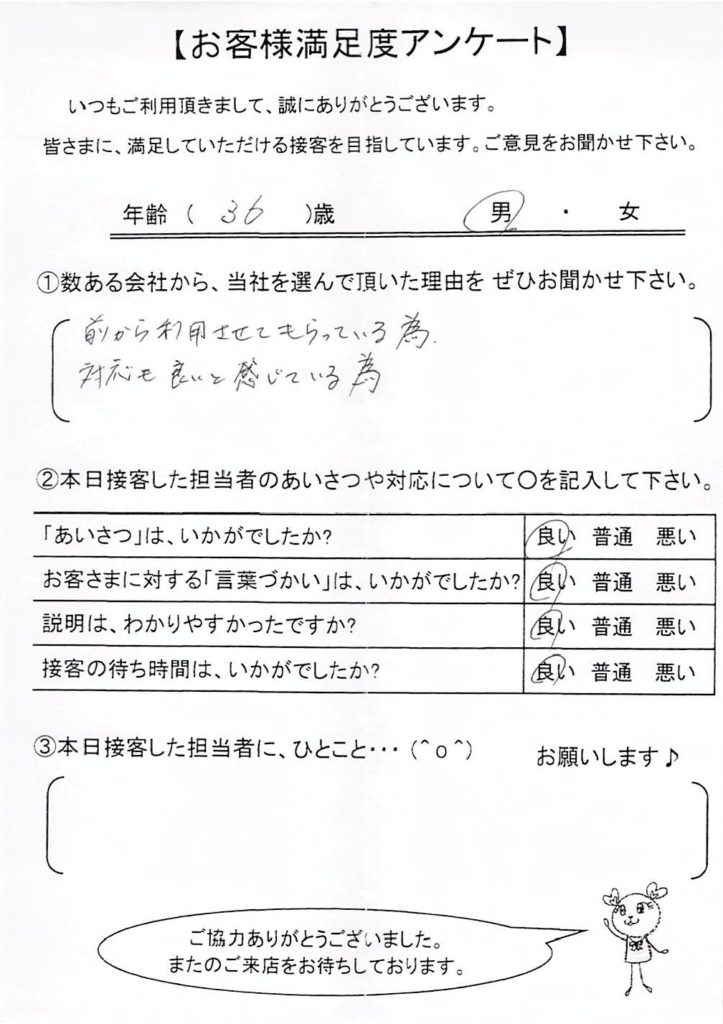 【お客様満足度アンケート】
いつもご利用頂きまして、誠にありがとうございます。
皆さまに、満足していただける接客を目指しています。ご意見をお聞かせ下さい。
年齢（ 36 ）歳 男 ・ 女
①数ある会社から、当社を選んで頂いた理由を ぜひお聞かせ下さい。
前から利用させてもらっている為.
対応も良いと感じている為
②本日接客した担当者のあいさつや対応について〇を記入して下さい。
「あいさつ」は、いかがでしたか? 良い 普通 悪い
お客さまに対する「言葉づかい」は、いかがでしたか? 良い 普通 悪い
説明は、わかりやすかったですか? 良い 普通 悪い
接客の待ち時間は、いかがでしたか? 良い 普通 悪い
③本日接客した担当者に、ひとこと・・・（^o^） お願いします♪
ご協力ありがとうございました。
またのご来店をお待ちしております。